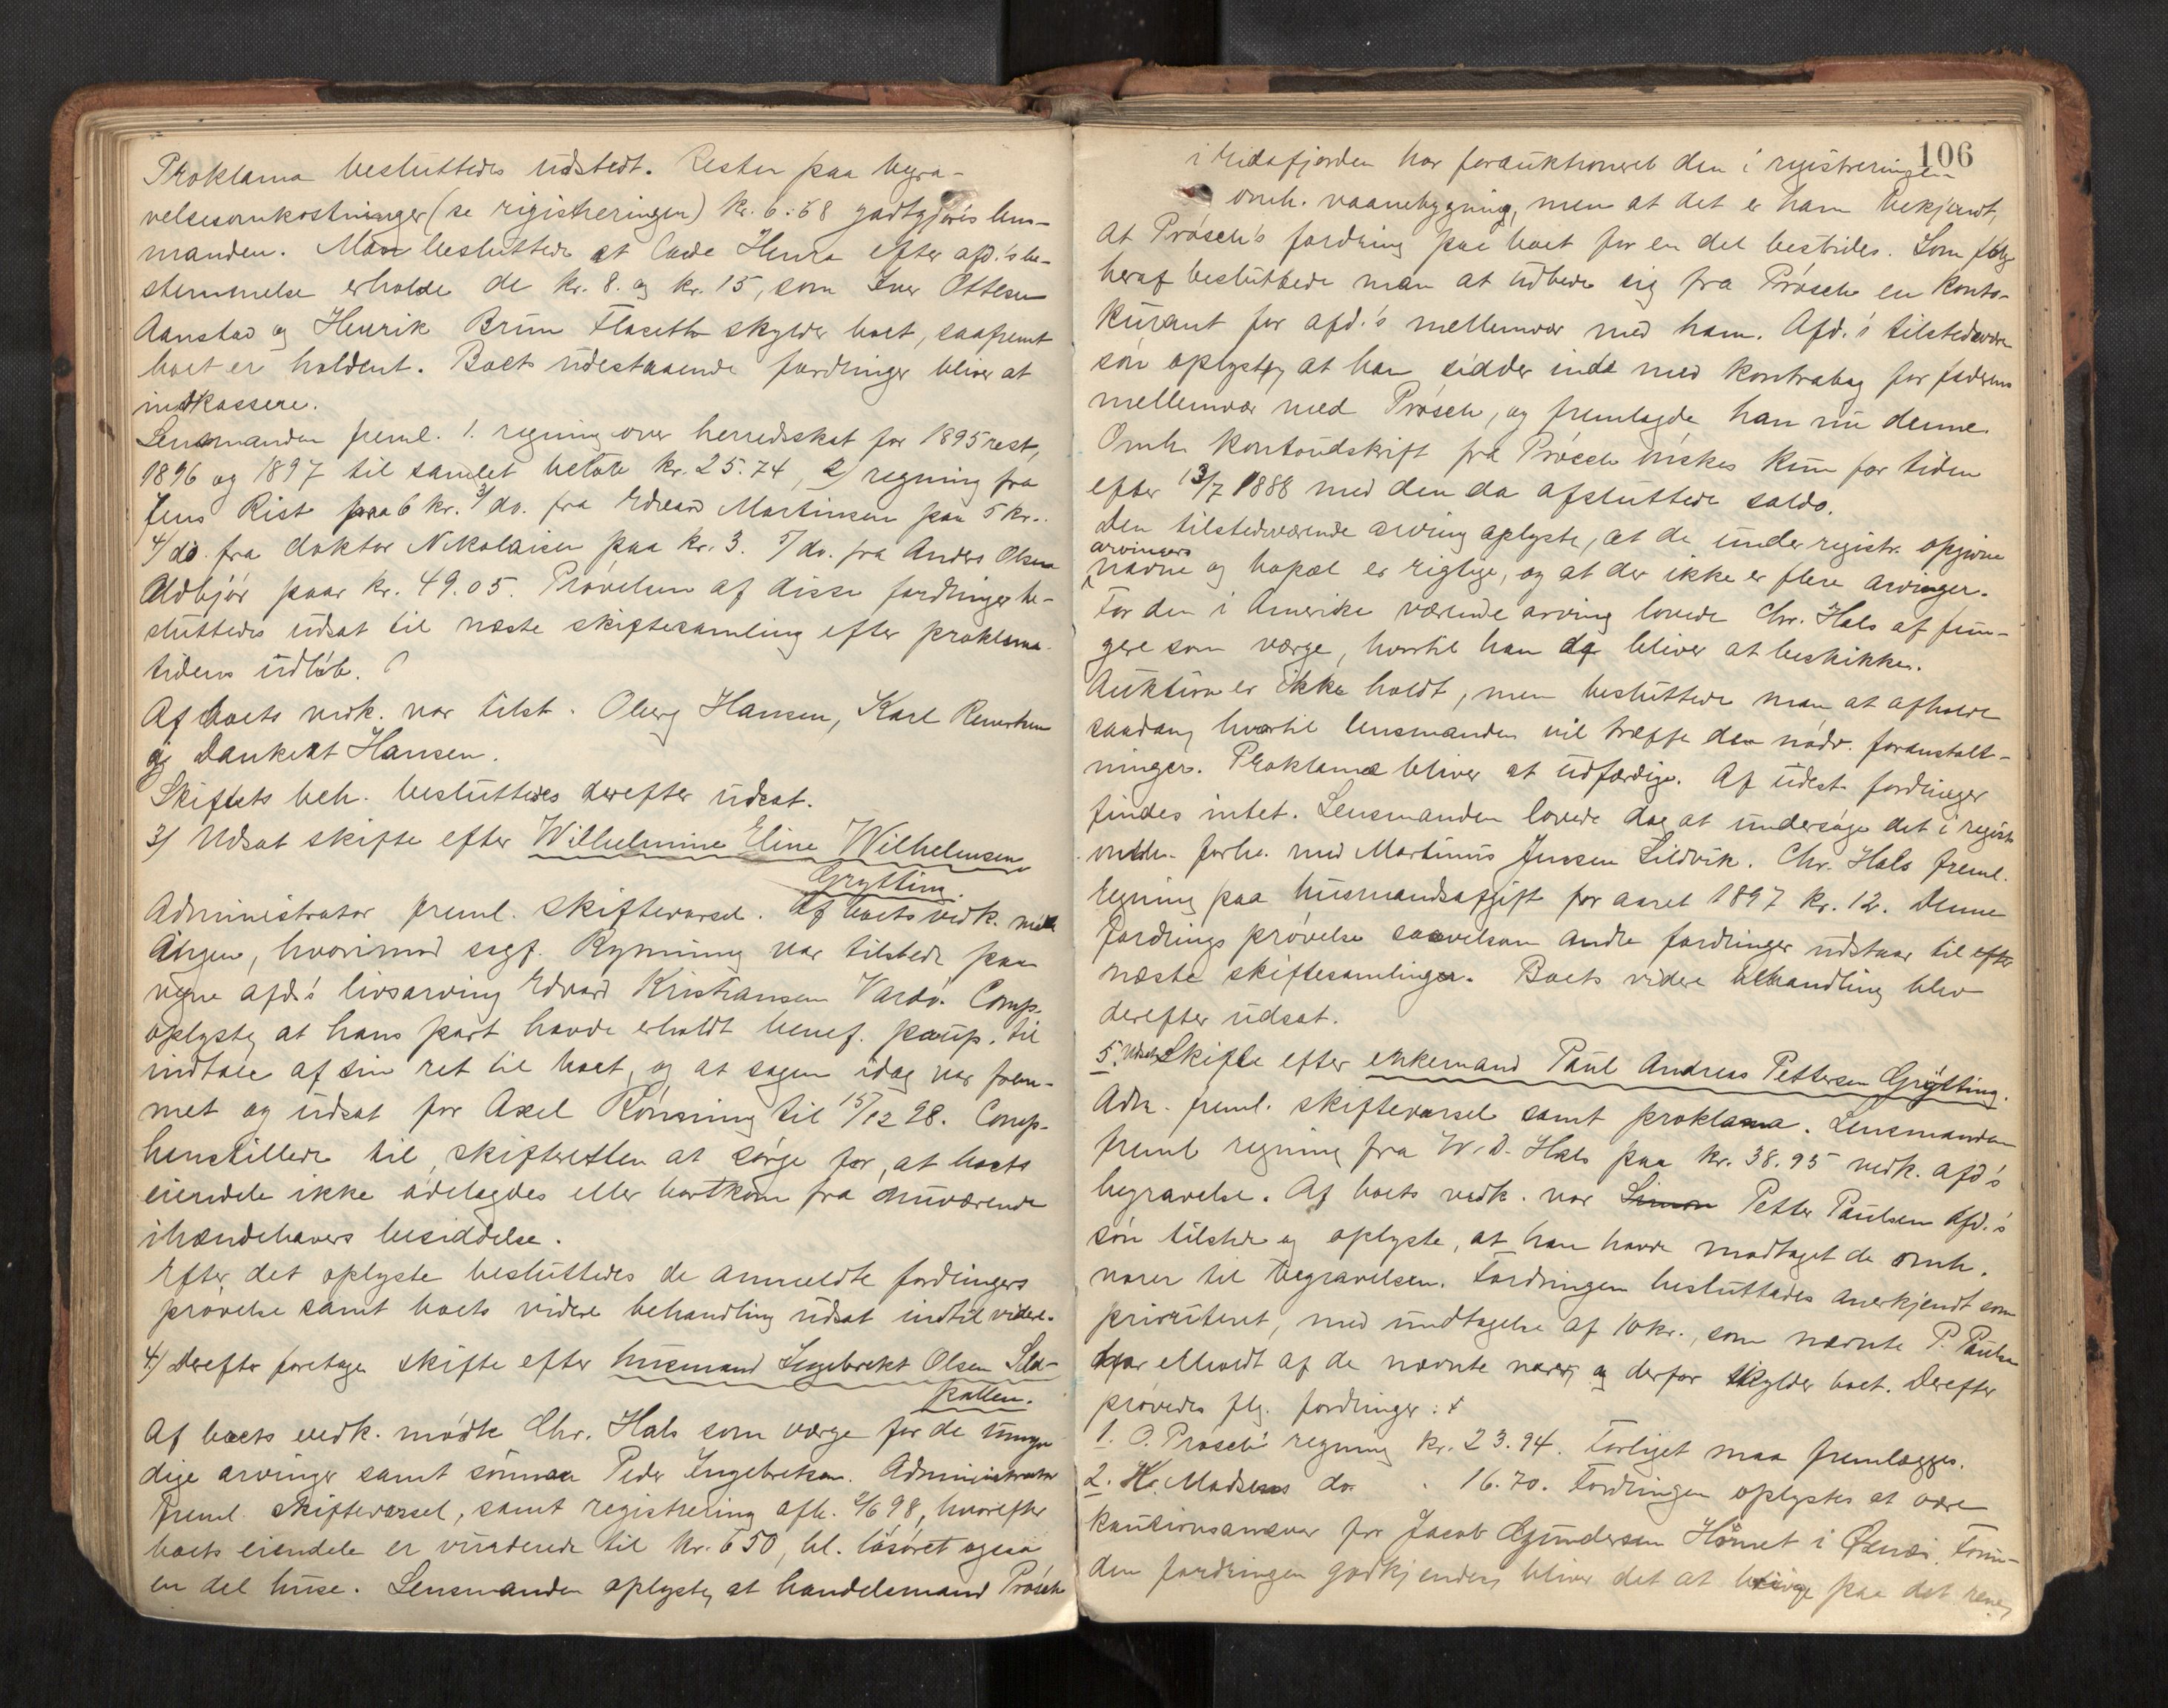 Proklama besluttedes udstedt. Resten paa begra-
velsesomkostninger (se rigistreringen) kr. 6:68 godtgjøres lens-
manden. Man besluttede at lade Henra efter afd.'s be-
stemmelse erholde de kr. 8. og kr. 15, som Iver Ottesen
Aanstad og Henrik Brun skylder boet, saafremt
boet er holdent. Boets udestaaende fordringer bliver at
indkassere.
Lensmanden freml. 1. regning over herredsskat for 1895 rest,
1896 og 1897 til samlet beløb kr. 25.74, 2/ regning fra
Jens Rist paa 6 kr. 3/ do. fra Edvard Martinsen paa 5 kr..
4/ do. fra doktor Nikolaisen paa kr. 3. 5/ do. fra Anders Olsen
paa kr. 49.05. Prøvelsen af disse fordringer be-
sluttedes udsat til næste skiftesamling efter proklama-
tidens udløb.
Af boets vedk. var tilst. Oluf Hansen, Karl
og Dankert Hansen.
Skiftets beh. besluttedes derefter udsat.
3/ Udsat skifte efter Wilhelmine Eline Wilhelmsen
Grytting.
Administrator freml. skiftevarsel. Af boets vedk. mødte
ingen, hvorimod sagf. Rynning var tilstede paa
vegne afd.'s livsarving Edvard Kristiansen Vardø. Comp.
oplyste, at hans part havde erholdt benef. paup. til
indtale af sin ret til boet, og at sagen idag var frem-
met og udsat for Axel Rønning til 15/12 98. Comp.
henstillede til skifteretten at sørge for, at boets
eiendele ikke ødelagdes eller bortkom fra nuværende
ihændehavers besiddelse.
Efter det oplyste besluttedes de anmeldte fordringers
prøvelse samt boets videre behandling udsat indtil videre.
4/ Derefter foretoges skifte efter husmand Ingebrekt Olsen Sild-
pollen.
Af boets vedk. mødte Chr. Hals som værge for de umyn-
dige arvinger samt sønnen Peder Ingebretsen. Administrator
freml. skiftevarsel, samt registrering afh. 2/6 98, hvorefter
boets eiendele er vurderede til kr. 650, bl. løsøret også
en del huse. Lensmanden oplyste, at handelsmand Prøsch
106
i Eidsfjorden har forauktioneret den i registreringen
omh. vaanebygning, men at det er ham bekjendt,
at Prøsch's fordring paa boet for en del bestrides. Som følge
heraf besluttede man at udbede sig fra Prøsch en konto-
kurant for afd.'s mellemvær med ham. Afd.'s tilstedevær.
søn oplyste, at han sidder inde med kontrabog for faderens
mellemvær med Prøsch, og fremlagde han nu denne.
Omh. kontoudskrift fra Prøsch ønskes kun for tiden
efter 13/7 1888 med den da afsluttede saldo.
Den tilstedeværende arving oplyste, at de under registr. opgivne
arvingers
navne og bopæl er rigtige, og at der ikke er flere arvinger.
For den i Amerika værende arving lovede Chr. Hals at fun-
gere som værge, hvortil han da bliver at beskikke.
Auktion er ikke holdt, men besluttede man at afholde
saadan, hvortil lensmanden vil træffe den nødv. foranstalt-
ninger. Proklama bliver at udfærdige. Af udest. fordringer
findes intet. Lensmanden lovede dog at undersøge det i registr.
omh. forh. med Martinus Jensen Sildvik. Chr. Hals freml.
regning paa husmandsafgift for aaret 1897 kr. 12. Denne
fordrings prøvelse saavelsom andre fordringer udstaar til efter
næste skiftesamlinger. Boets videre behandling blev
derefter udsat.
5. Udsat Skifte efter enkemand Paul Andreas Pettersen Grytting.
Adm. freml. skiftevarsel samt proklama. Lensmanden
freml. regning fra W. D. Hals paa kr. 38.95 vedk. afd's
begravelse. Af boets vedk. var Simon Petter Paulsen afd.'s
søn tilstede og oplyste, at han havde modtaget de omh.
varer til begravelsen. Fordringen besluttedes anerkjendt som
prioriteret, med undtagelse af 10 kr., som nævnte P. Paulsen
har erholdt af de nævnte varer, og derfor skylder boet. Derefter
prøvedes flg. fordringer:
1. O. Prøsch' regning kr. 23.94. Forliget maa fremlægges.
2. K. Madsens do. . 16.70. Fordringen oplystes at være
kautionsansvar for Jacob Gundersen i Øksnæs. Forin-
den fordringen godkjendes, bliver det at bringe paa det rene,